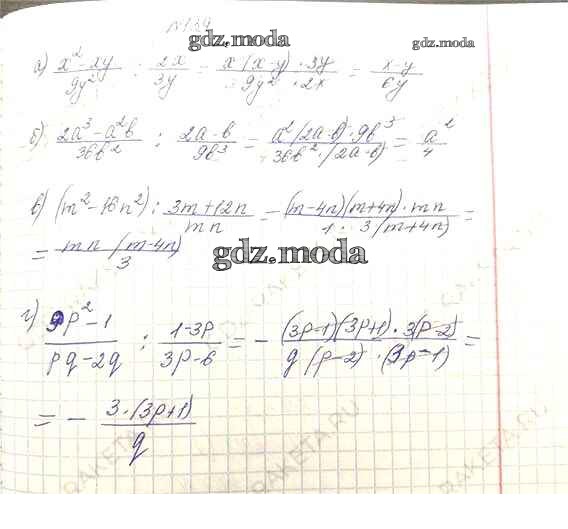 №139
gdz.moda
gdz.moda
а) (x² - xy)/(9y²) : 2x/(3y) = (x(x-y)·3y)/(9y²·2x) = (x-y)/(6y)
б) (2a³ - a²b)/(36b²) : (2a-b)/(9b³) = (a²(2a-b)·9b³)/(36b²·(2a-b)) = a²/4
в) (m² - 16n²) : (3m+12n)/(mn) = ((m-4n)(m+4n)·mn)/(1·3(m+4n)) =
= (mn(m-4n))/3
gdz.moda
г) (9p² - 1)/(pq-2q) : (1-3p)/(3p-6) = - ((3p-1)(3p+1)·3(p-2))/(q(p-2)·(3p-1)) =
= - (3·(3p+1))/q
RAKETA.RU
RAKETA.RU